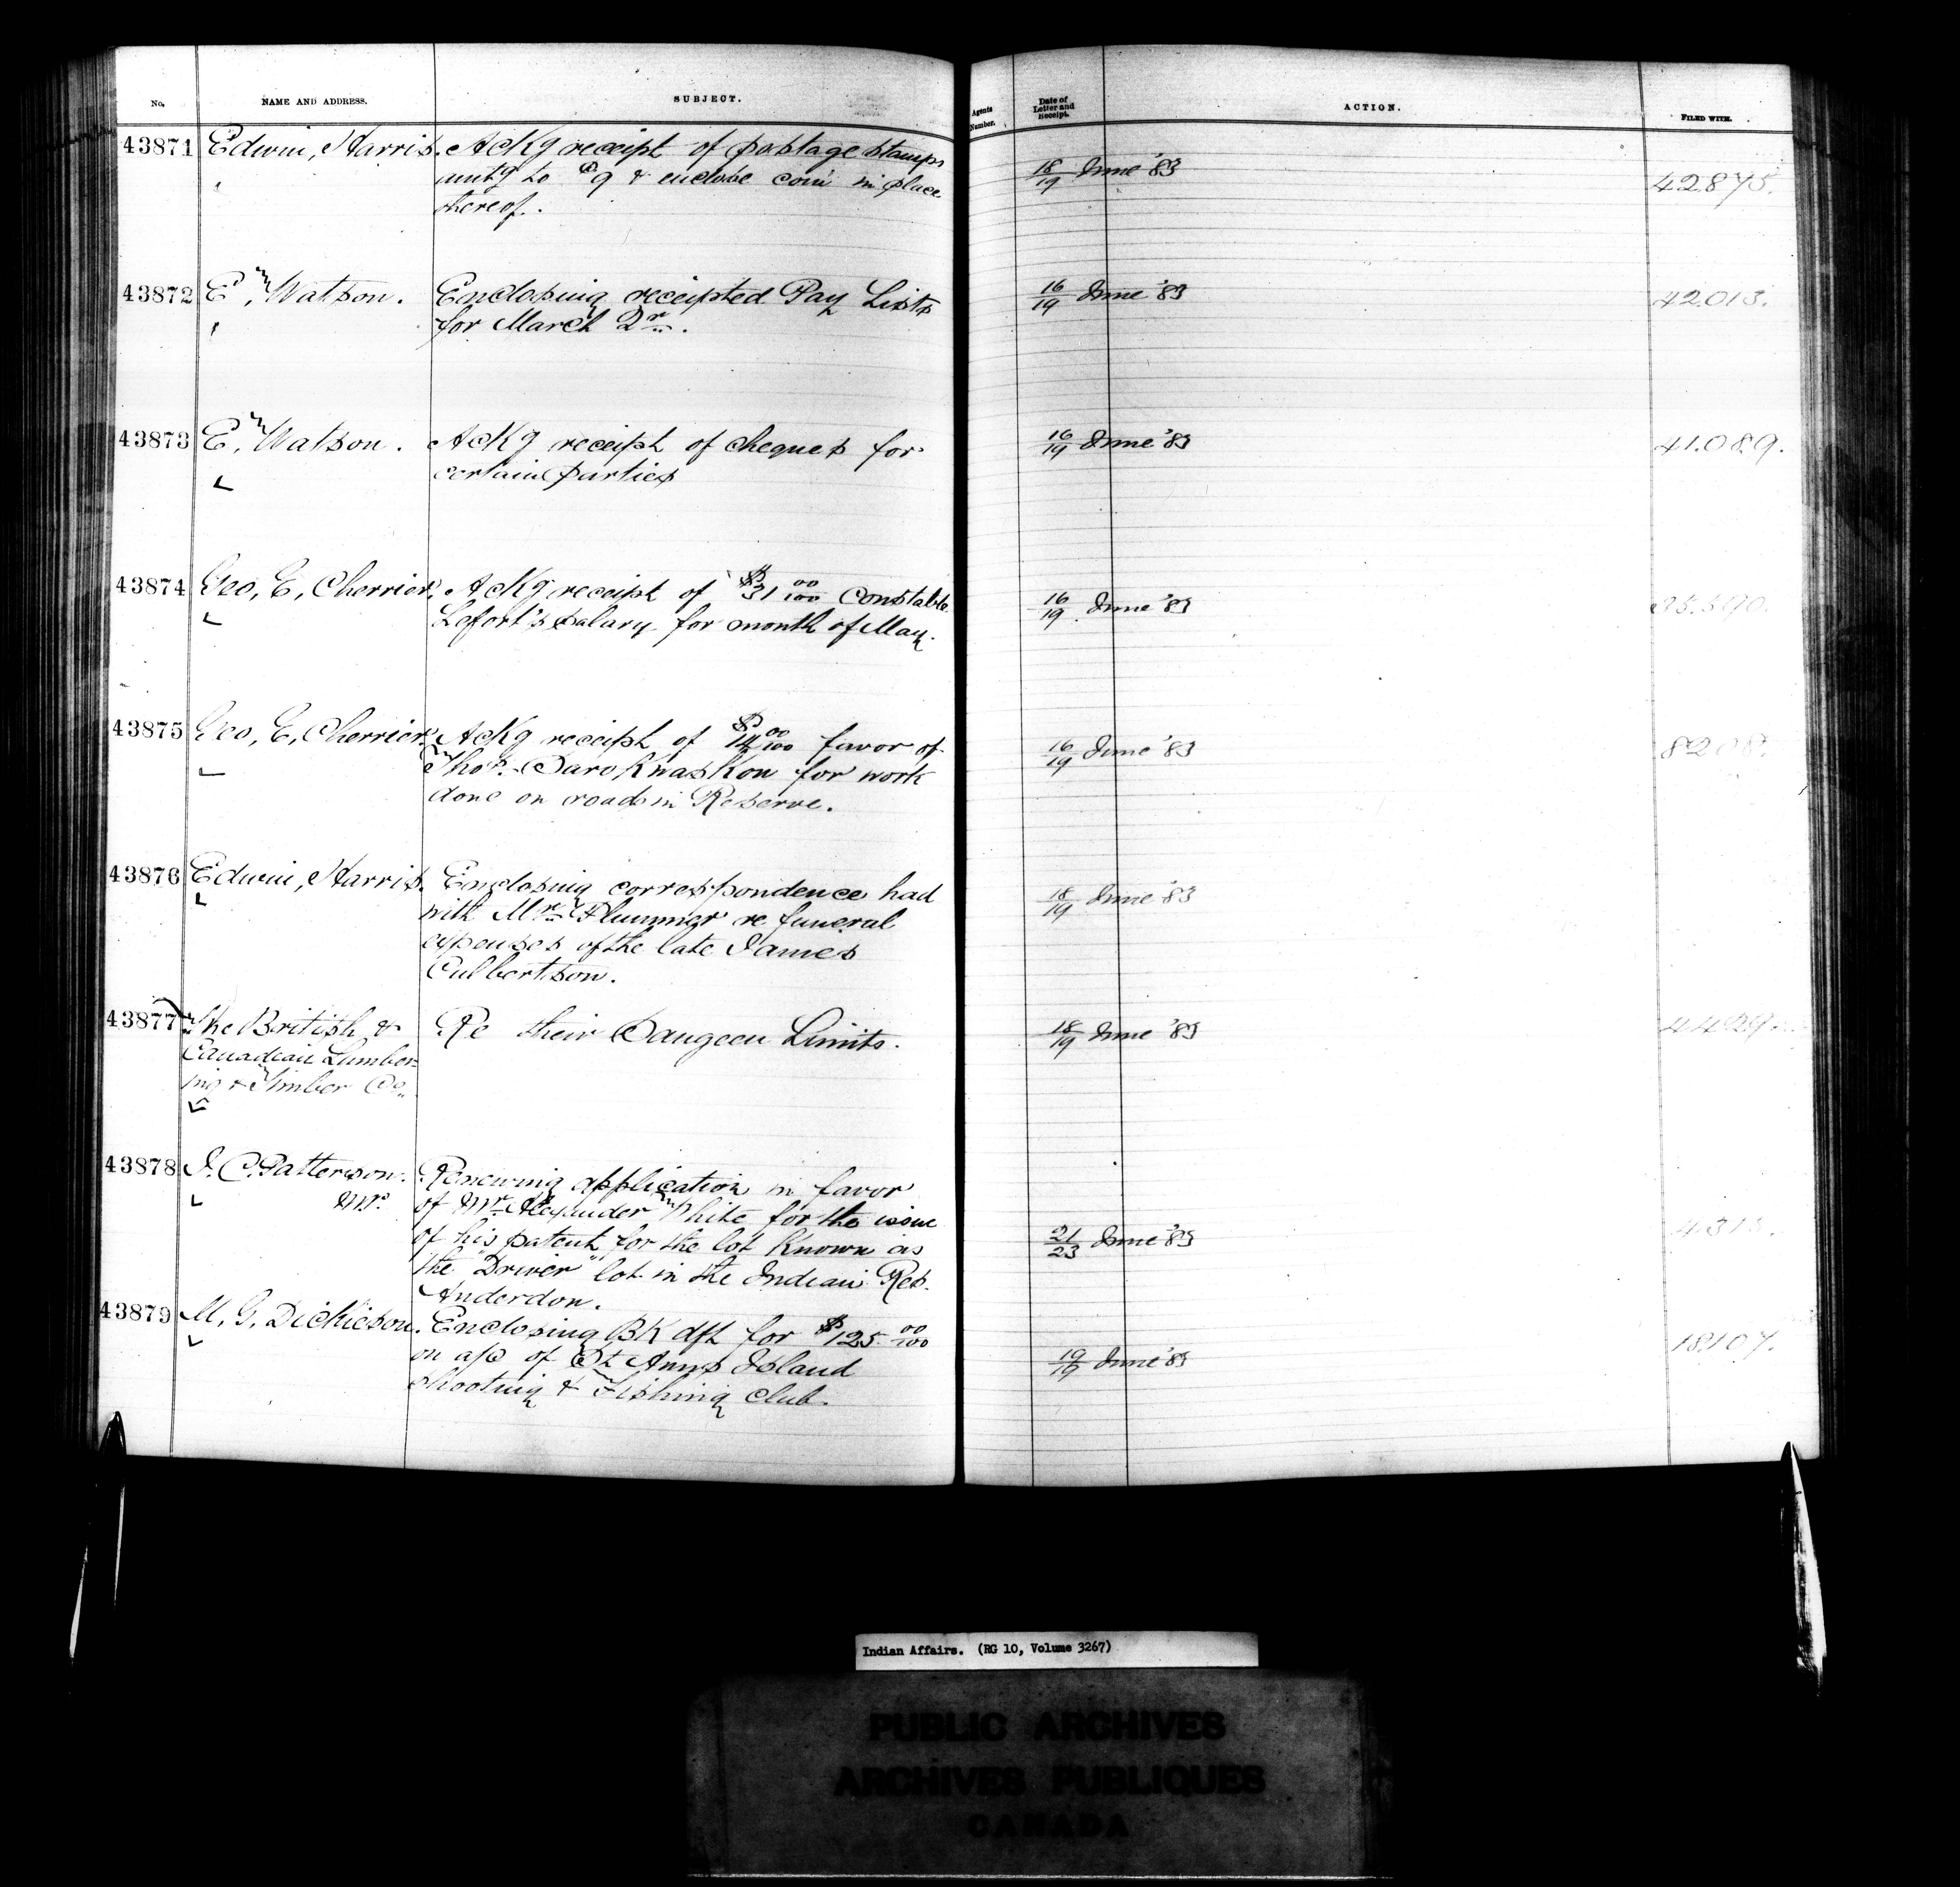 No. NAME AND ADDRESS. SUBJECT. Agents Number. Date of Letter and Receipt. ACTION. FILED WITH.
43871 Edwin, Harris. Ackg receipt of postage stamps 18/19 June '83 42875.
amtg to & enclose coin in place
thereof.
43872 E, Watson. Enclosing receipted Pay Lists 16/19 June '83 42013.
for March Qr.
43873 E, Watson. Ackg receipt of cheques for 16/19 June '83 41.089.
certain parties
43874 Geo, E, Cherrier. Ackg receipt of $31 00/100 Constable 16/19 June '83
Lefort's salary for month of May.
43875 Geo, E, Cherrier. Ackg receipt of $14 00/100 favor of 16/19 June '83 8208.
Thos. Saro Knaskon for work
done on roads in Reserve.
43876 Edwin, Harris. Enclosing correspondence had 18/19 June '83
with Mr Plummer re funeral
expenses of the late James
Culbertson.
43877 The British & Re their Saugeen Limits. 18/19 June '83
Canadian Lumber-
ing & Timber Co.
43878 J. C. Patterson. Renewing application in favor
M.P. of Mr Alexander White for the issue
of his patent for the lot known as 21/23 June '83
the "Driver" lot in the Indian Res.
Anderdon.
43879 M. G. Dickieson. Enclosing Bk dft for $125 00/100 19/19 June '83 18107.
on a/c of St Anns Island
Shooting & Fishing Club.
Indian Affairs. (RG 10, Volume 3267)
PUBLIC ARCHIVES
ARCHIVES PUBLIQUES
CANADA